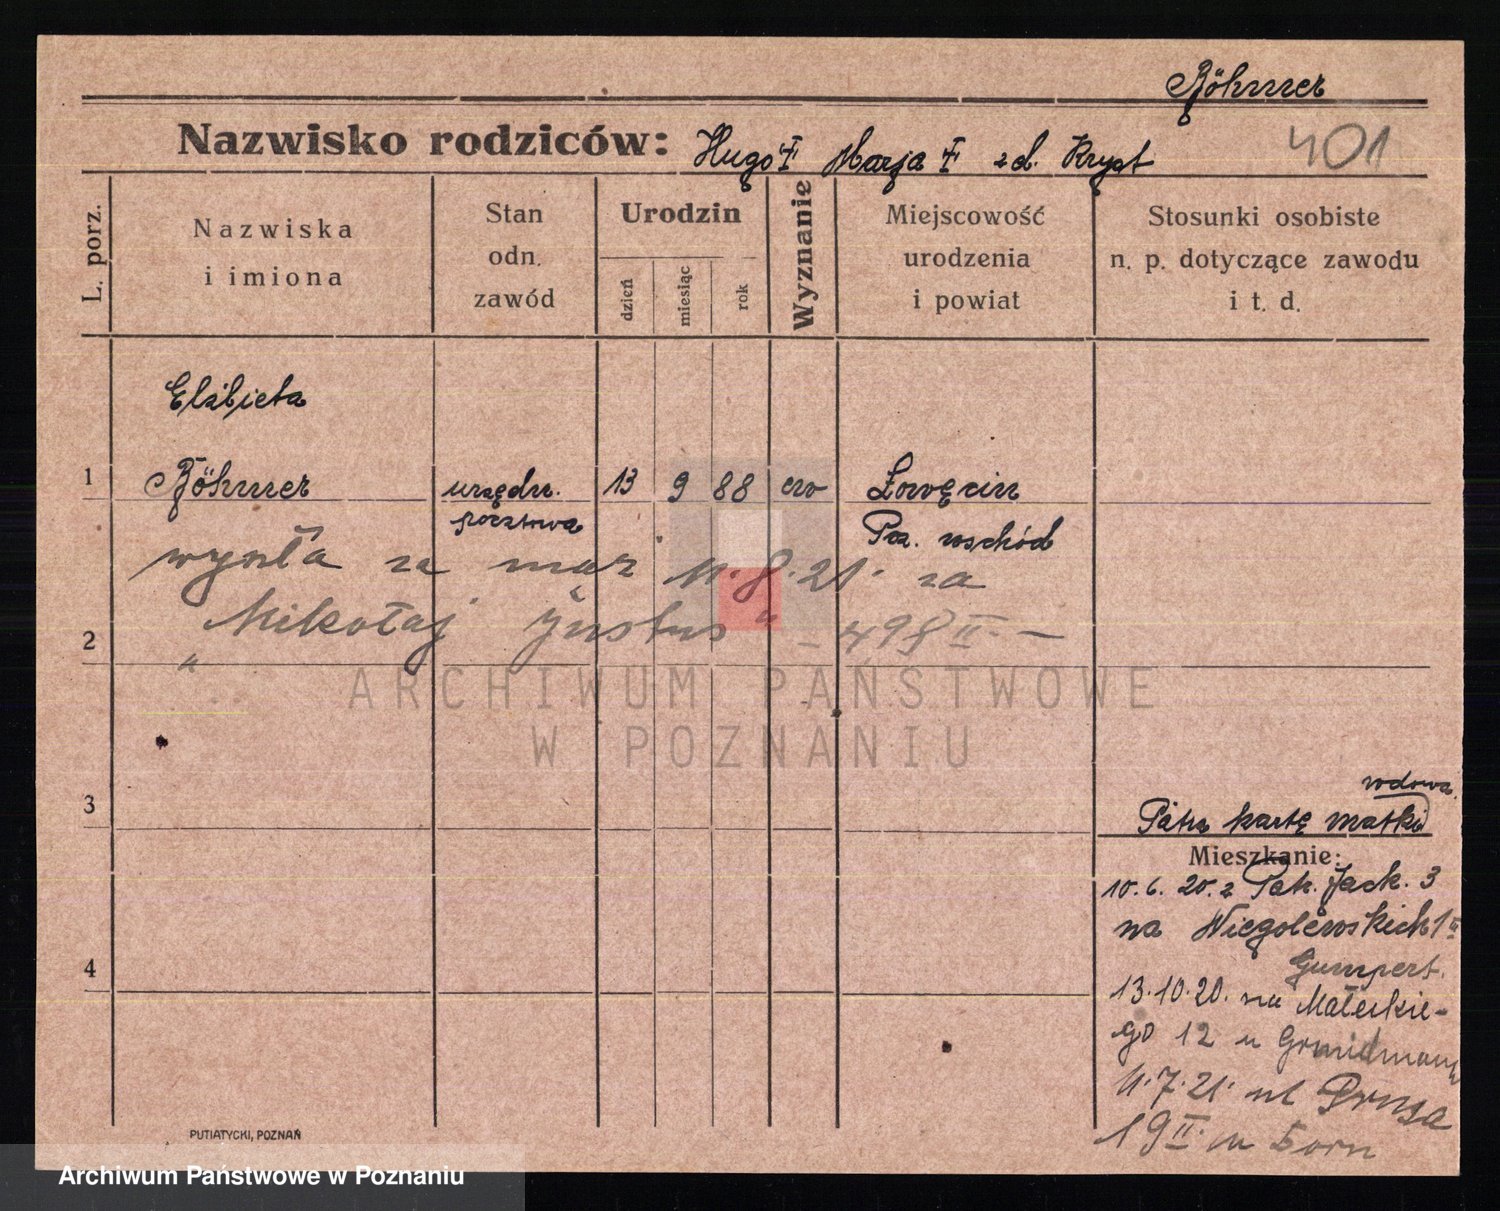 Böhmer
Nazwisko rodziców: Hugo † Marja † zd. Kryst
401
L. porz.
Nazwiska
i imiona
Stan
odn.
zawód
Urodzin
dzień
miesiąc
rok
Wyznanie
Miejscowość
urodzenia
i powiat
Stosunki osobiste
n. p. dotyczące zawodu
i t. d.
Elżbieta
1 Böhmer urzędn. 13 9 88 ew Łowęcin
pocztowa Poz. wschód
wyszła za mąż 11.8.21. za
2 "Mikołaj Justus" – 498 II. –
"
ARCHIWUM PAŃSTWOWE
W POZNANIU
3
wdowa
Patrz kartę matki
Mieszkanie:
10.6.20. z Pat. Jack. 3
na Niegolewskich 1 III
Gumpert.
13.10.20. na Małeckie-
go 12 u
11.7.21. ul Prusa
19 II. u
4
PUTIATYCKI, POZNAŃ
Archiwum Państwowe w Poznaniu